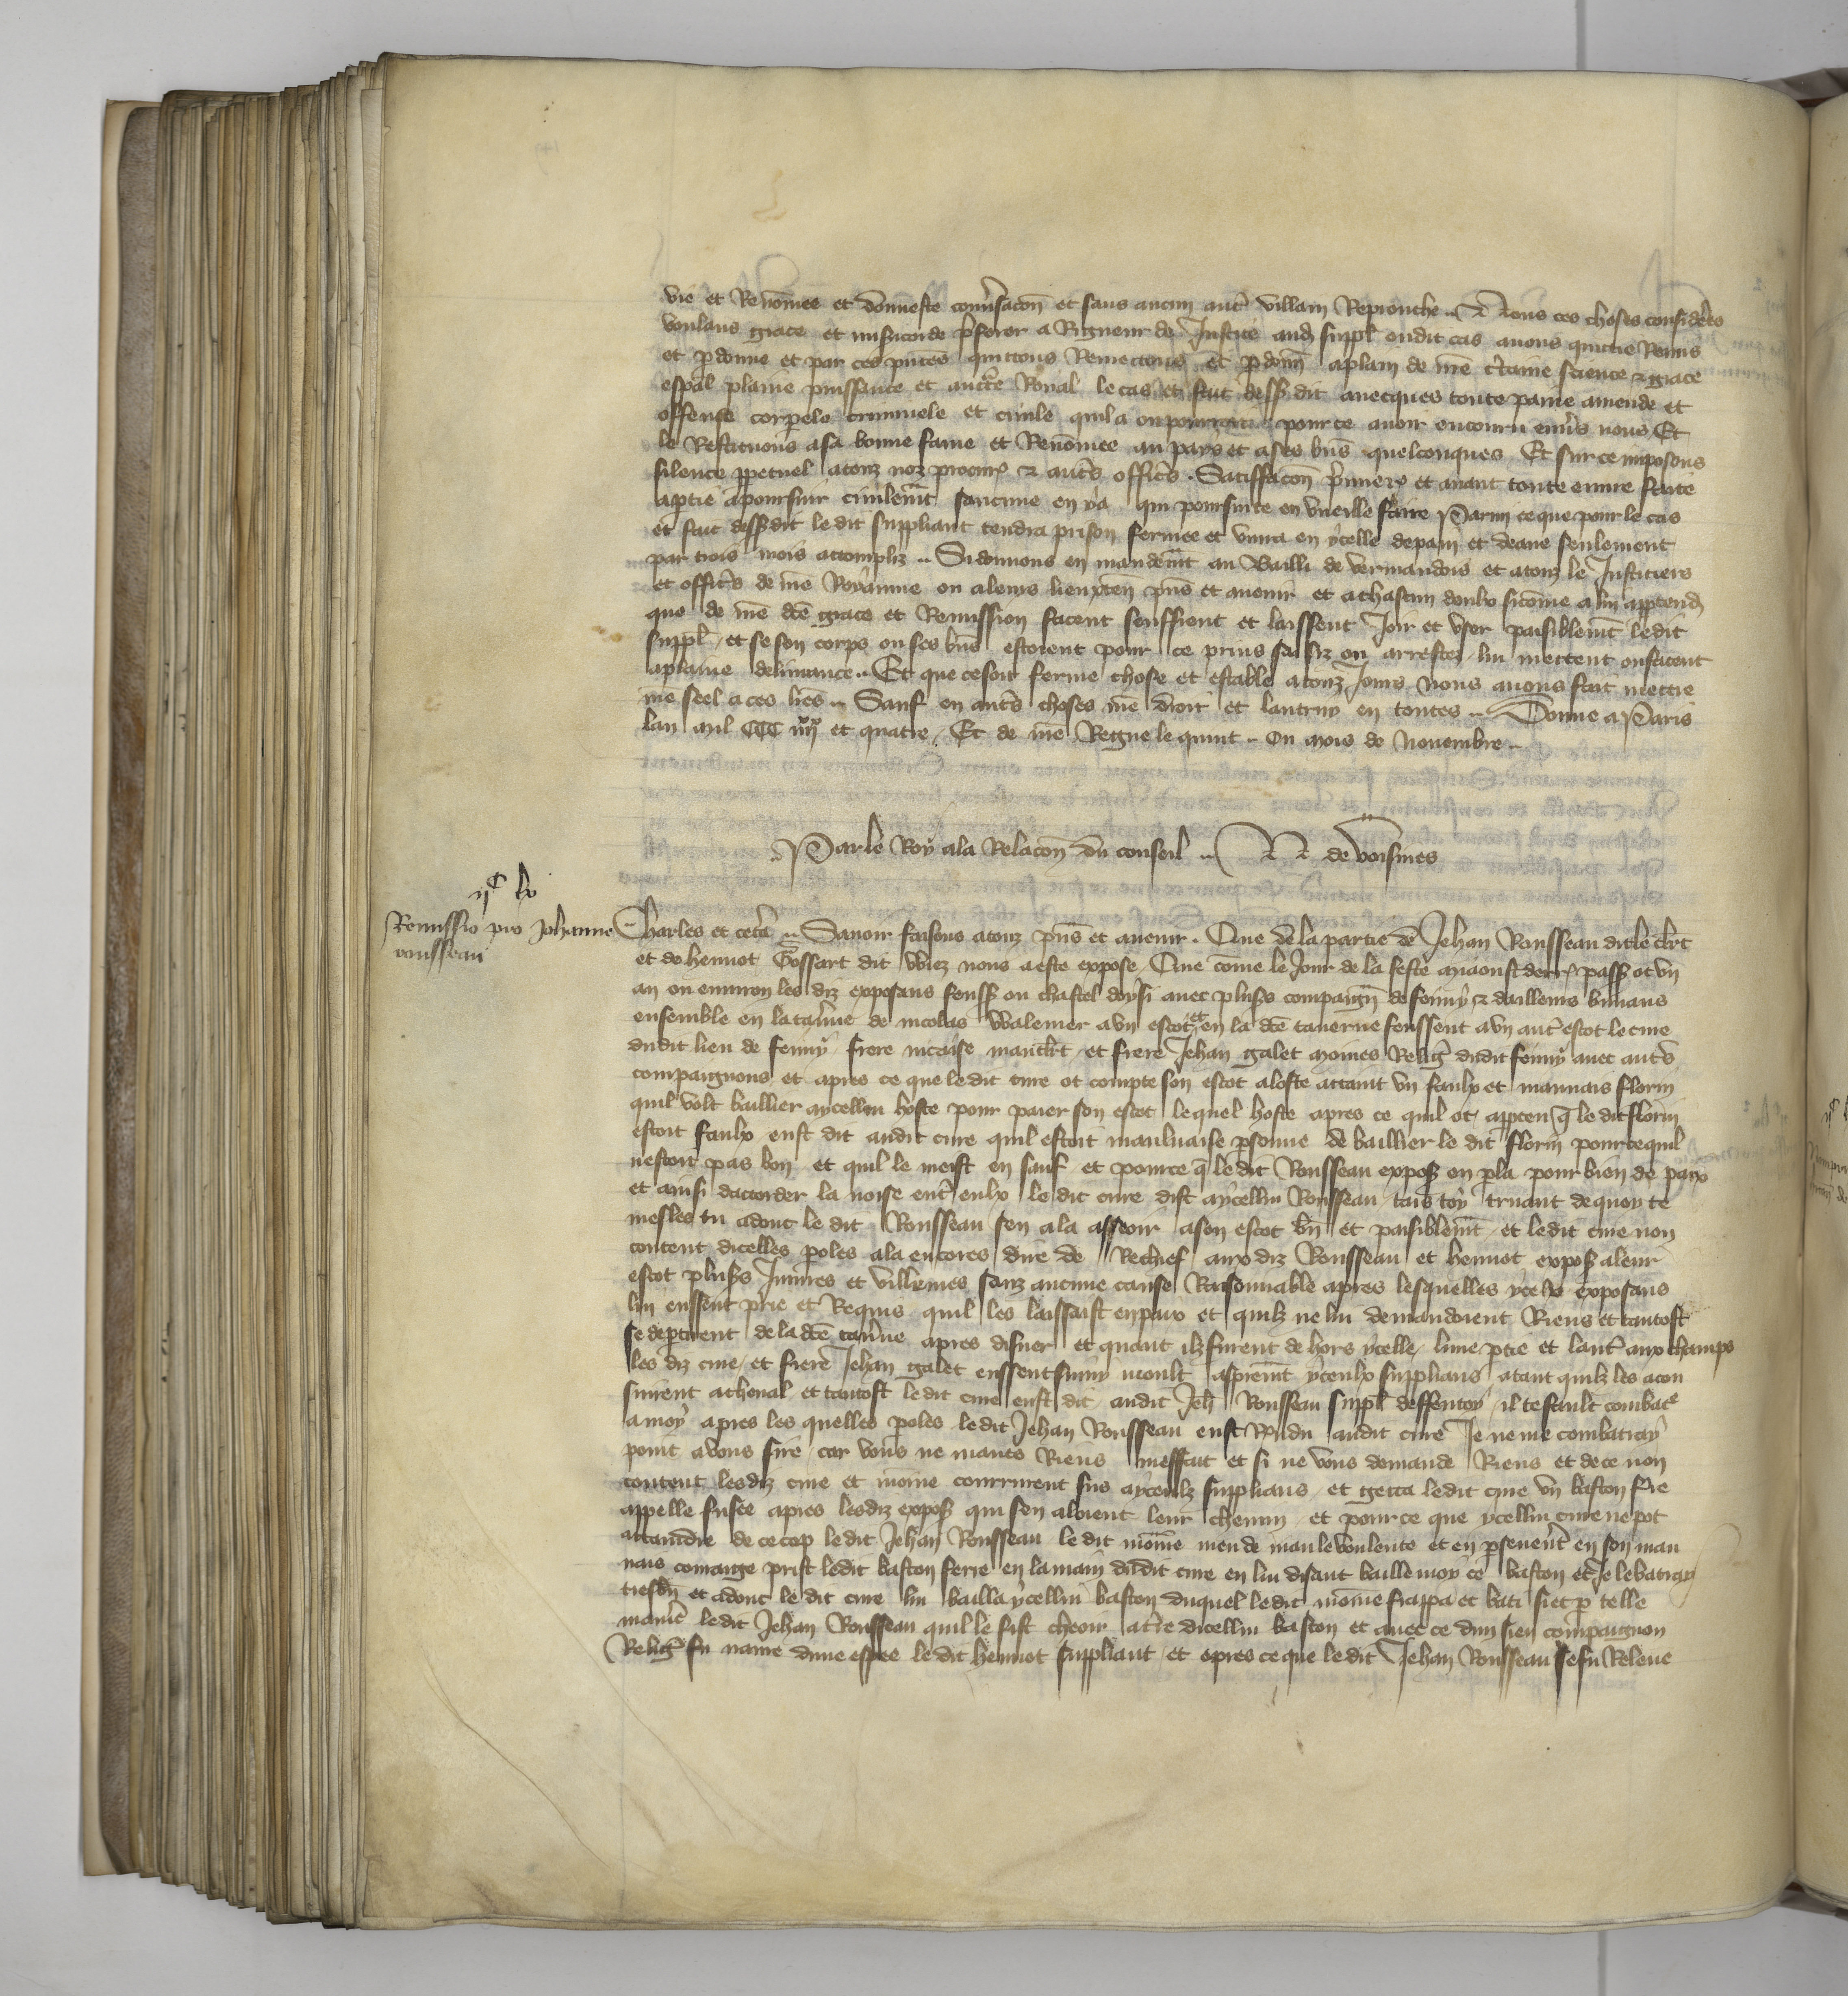 vie et Renõmee et donneste conv̾sacõn et sans aucun aut̾ villain Reprouche .. Nous ces choses considerees
voulans grace et mis̾icorde p̾ferer a Rigueur de Justice aud suppl̾ oudit cas avons quictie Remis
et p̱donne et par ces p̾ntes quictons Remectons et p̱donn̄ a plain de nr̄e c̾taine science & grace
esp̄al plaine puissance et auct̾te Royal le cas et fait dessusdit avecques toute paine amende et
offense corp̱ele criminele et civile quil a ou pourroit pour ce avoir encouru env̾s nous Et
le Restituons a sa bonne fame et Renõmee au pays et a ses biens quelconques Et sur ce imposons
silence pp̱etuel a touz noz procur̾ & aut̾s offic̾s . Satiffacõn p̾mier̾ et avant toute euvre faite
a ptie a poursuir civilem̄t saucune en y a qui poursuite en vueille faire Parmi ce que pour le cas
et fait dessusdit ledit suppliant tendra prison fermee et vivra en ycelle de pain et deaue seulement
par trois mois acompliz .. Si donnons en mandem̄t au Bailli de Vermandois et a touz le Justiciers
et offic̾s de nr̄e Royaume ou a leurs lieuxten̄ p̾ns et avenir et a chascun deulx sicõme a lui app̱tend̾
que de nr̄e dc̄e grace et Remission facent seuffrent et laissent Joir et user paisiblem̄t ledit
suppl̾ et se son corps ou ses biens estoient pour ce prins saisiz ou arrestez lui mettent ou facent
a plaine delivrance .. Et que ce soit ferme chose et estable a touz Jours Nous avons fait mectre
nr̄e seel a ces lr̄es .. Sauf en aut̾s choses nr̄e droit et lautruy en toutes .. Donne a Paris
lan mil CCC iiij^xx et quatre Et de nr̄e Regne le quint .. ou mois de Novembre ..
Par le Roy a la Relacõn du conseil .. N de voisines
ij^c lv
Remissio pro Johanne
rousseau
Charles et cet̾a .. Savoir faisons a touz p̾ns et avenir . Que de la partie de Jehan Rousseau dit le clerc
et de hennot Gossart dit Wiez nous a este expose Que cõme le Jour de la feste miaoust derr̾ passe ot un
an ou environ les diz exposans feuss̄ ou chastel doysi avec plus̾s compaign̄ de feimy & dailleurs buvans
ensemble en la tav̾ne de nicolas Walemer a un escot et en la dc̄e taverne feussent a un aut̾ escot le cure
dudit lieu de feimy frere nicaise maucl̾t et frere Jehan galet moines Relig̾ dudit feimy avec aut̾s
compaignons et apres ce que ledit cure ot compte son escot a loste attaint un faulx et mauvais florin
quil volt baillier a ycellui hoste pour paier son escot lequel hoste apres ce quil ot app̱ceu q̄ ledit florin
estoit faulx eust dit audit cure quil estoit maulvaise p̱sonne de baillier ledit florin pource quil
nestoit pas bon et quil le meist en sauf et pource q̄ ledit Rousseau expos̄ en pla pour bien de paix
et ainsi dacorder la noise ent̾ eulx ledit cure dist a ycellui Rousseau tais toy truant de quoy te
mesles tu adonc ledit Rousseau sen ala asseoir a son escot bn̄ et paisiblem̄t et ledit cure non
content dicelles p̱oles ala encores dire de Rechief aux diz Rousseau et hennot expos̄ a leur
escot plus̾s Injures et villenies sanz aucune cause Raisonnable apres lesquelles yceulx exposans
lui eussent prie et Requis quil les laissast en paix et quilz ne lui demandoient Riens et tantost
se dep̱tirent de la dc̄e tav̾ne apres disner et quant ilz furent dehors ycelle lune p̱tie et laut̾ aux champs
les diz cure et frere Jehan galet eussent suiuy moult asp̱rem̄t yceulx supplians a tant quilz les acon
suirent a cheval et tantost ledit cure eust dit audit Jeh̄ Rousseau suppl̾ deffen toy il te fault combat̾e
a moy apres les quelles p̱oles ledit Jehan Rousseau eust Rn̄du audit cure Je ne me combatray
point a vous sire car vous ne mavez Riens meffait et si ne vous demande Riens et de ce non
content lesdiz cure et moine coururent sus a yceulz supplians et getta ledit cure un baston ferre
appelle fusee apres lesdiz expos̄ qui sen aloient leur chemin et pour ce que ycellui cure ne pot
attaindre de ce cop ledit Jehan Rousseau ledit moine meu de mauvese voulente et en p̱sev̾ent en son mau
vais couraige prist ledit baston ferre en la main dudit cure en lui disant baille moy ce baston et Je le batray
tresbn̄ et adonc ledit cure lui bailla ycellui baston duquel ledit moine frappa et bati si et p̱ telle
mani̾e ledit Jehan Rousseau quil le fist cheoir a t̾re dicellui baston et avec ce dun sien compaignon
Relig̾ fu navre dune espee ledit hennot suppliant et apres ce que ledit Jehan Rousseau se fu Releve